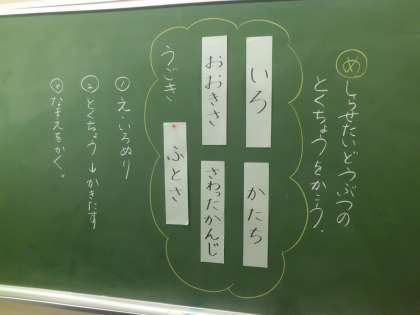 め しらせたいどうぶつの
とくちょうをかこう。
いろ
かたち
おおきさ
さわったかんじ
うごき
ふとさ
① え・いろぬり
② とくちょう→かきたす
なまえをかく。